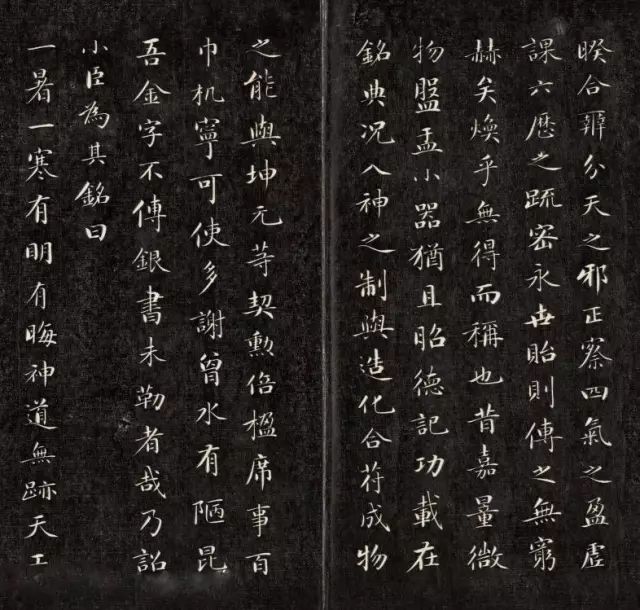 暌合辨分天之邪正察四氣之盈虛
課六曆之疏密永世貽則傳之無窮
赫矣煥乎無得而稱也昔嘉量微
物盤盂小器猶且昭德記功載在
銘典况入神之制與造化合符成物
之能與坤元等契勲倍楹席事百
巾机寧可使多謝曾水有陋昆
吾金字不傳銀書未勒者哉乃詔
小臣為其銘曰
一暑一寒有明有晦神道無跡天工